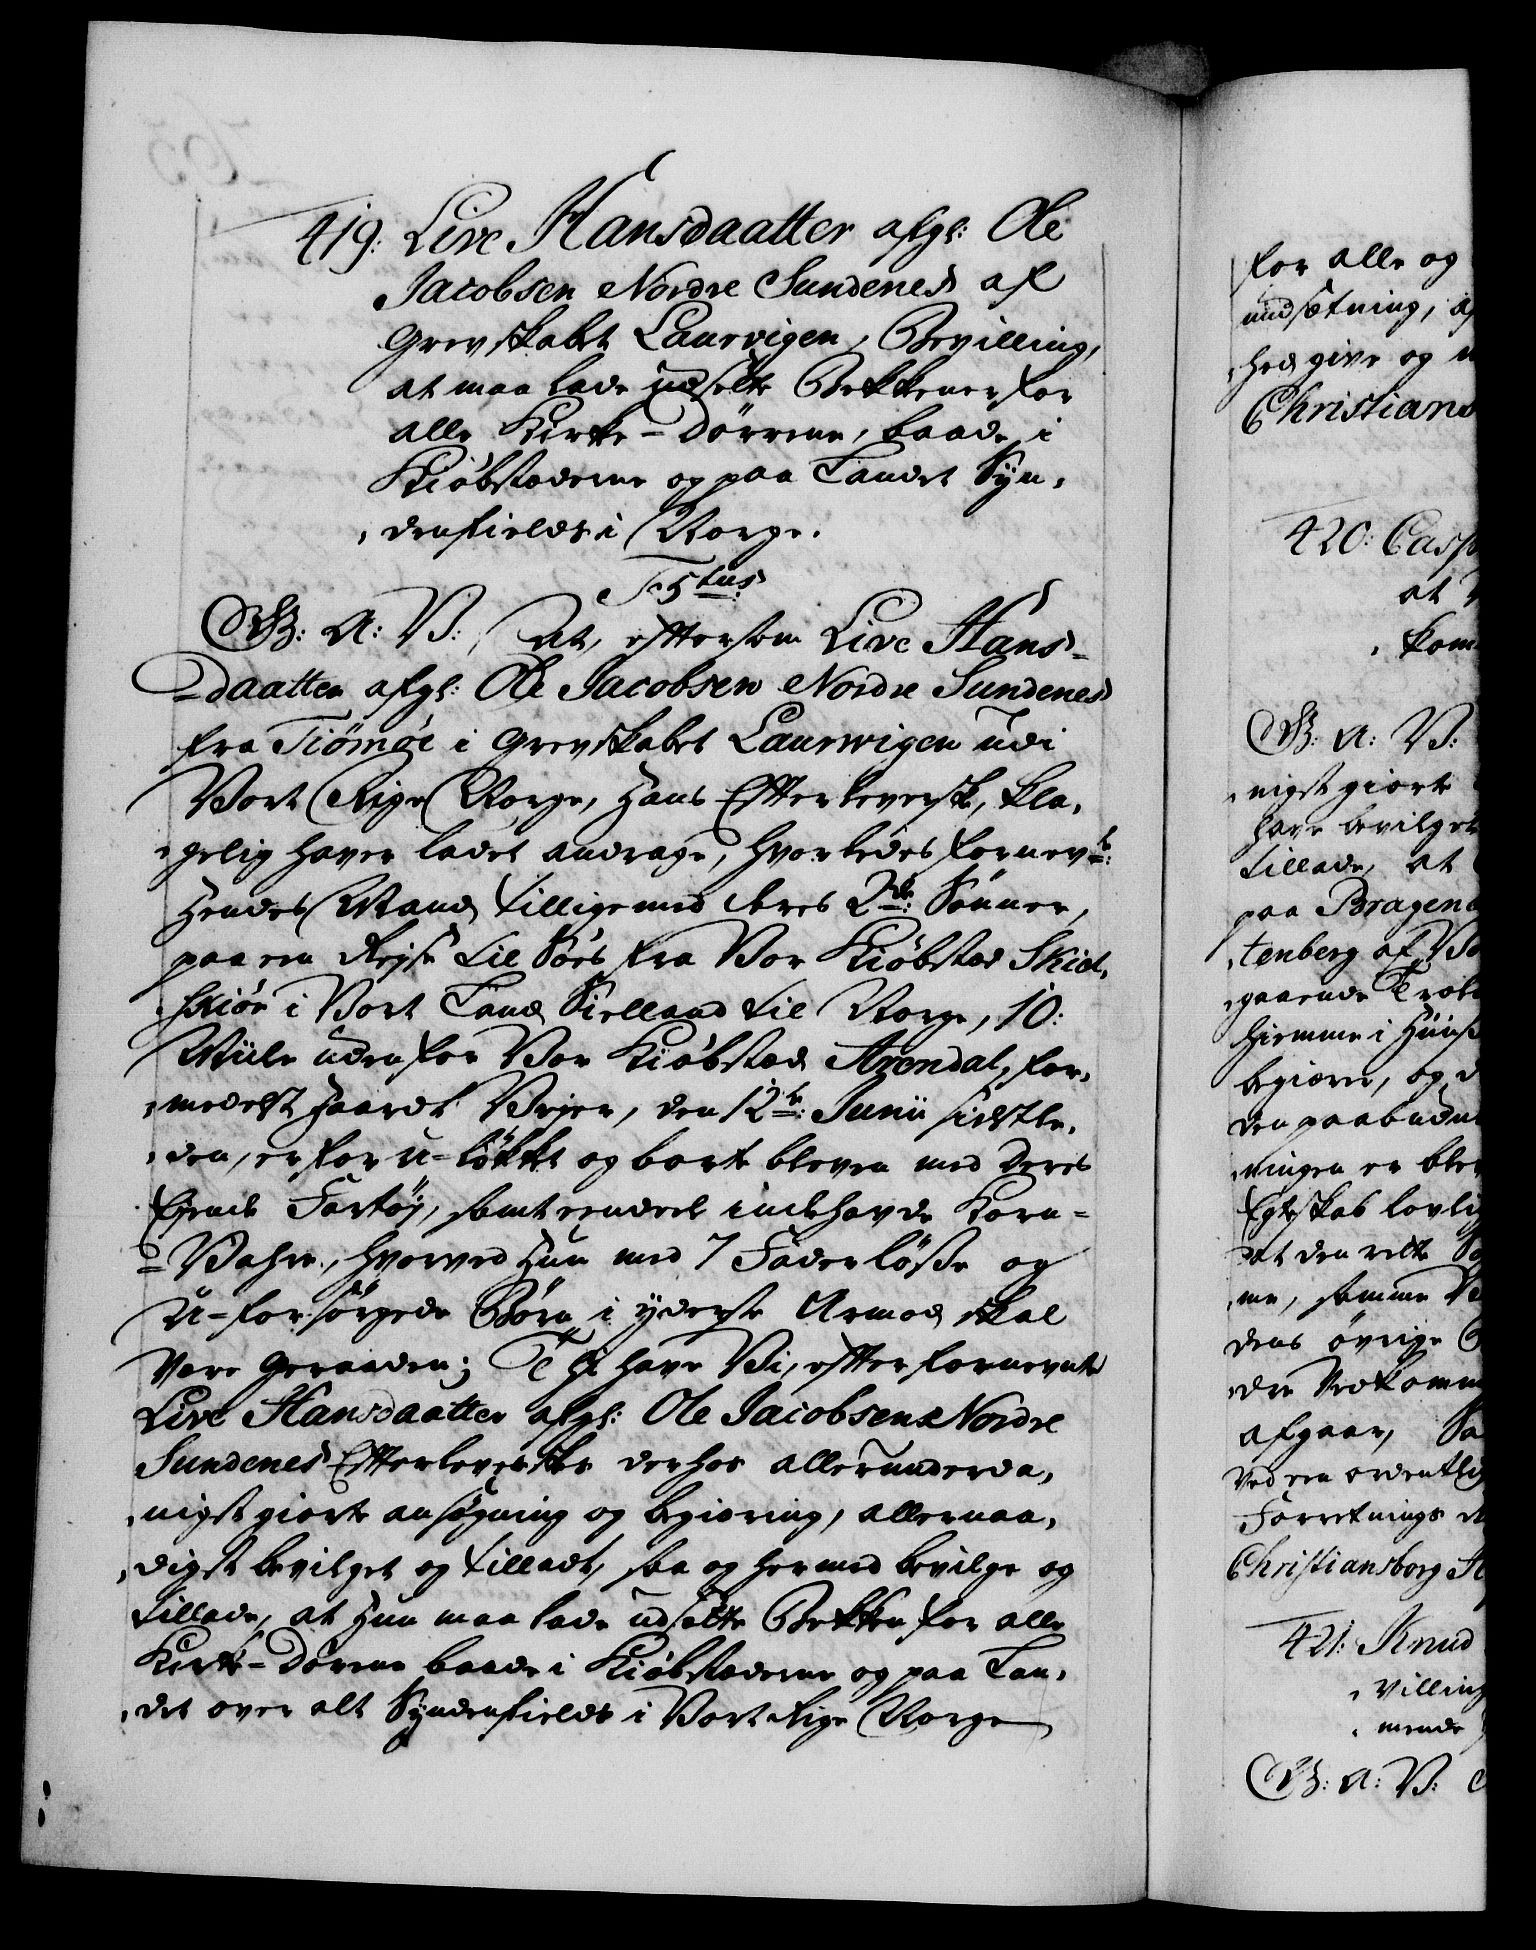 419: Live Hansdaatter afgl: Ole
Jacobsen Nordre Sundenes af
Grevskabet Laurvigen, Bevilling,
at maa lade udsette Bekkener for
alle Kirke-Dörrene, baade i
Kiöbstæderne og paa Landet Syn,
,denfields i Norge.
G: A: V: At, eftersom Live Hans-
-daatter afgl: Ole Jacobsen Nordre Sundenes
fra Tiömöe i Grevskabet Laurwigen udi
Vort Rige Norge, Hans Efterleverske, kla,
,gelig haver ladet andrage, hvorledes fornevte:
Hendes Mand tilligemed deres 2de: Sönner,
paa en Rejse til Söes fra Vor Kiöbstæd Skiel,
,skiör i Vort Land Sielland til Norge, 10:
Miile uden for Vor Kiöbstæd Arendal, for,
,medelst haardt Vejer, den 12te: Junii sidstle,
,den, er for u-lökket og borte bleven med Deres
Egende Fartöj, samt eendeel indehavde Korn-
-Vahre, hvorved Hun med 7 Faderlöse og
U-forsörgede Börn i yderste Armod skal
være geraaden; Thi have Vi, efter fornevnte
Live Hansdaatter afgl: Ole Jacobsens Nordre
Sundenes Efterleverskes derhos allerunderda,
,nigst giorte ansögning og begiæring, allernaa,
,digst bevilget og tilladt, saa og hermed bevilge og
tillade, at Hun maa lade udsette Bekken for alle
Kirke-Dörrene baade i Kiöbstæderne og paa Lan,
,det over alt Syndenfields i Vort Rige Norge
for alle og
undsætning,
,hed give og
Christians
420: Casp
at
,kom
G: A: V:
,nigst giorte
have bevilget
tillade, at
paa Bragen
,tenberg af Vo
,gaaende Trolo
hiemme i Huus
begiærer, og
den paabudne
,ningen er blev
Egteskab lovlig
at den rette
,me, samme
dens övrige
,de Vedkomm
afgaar, Sa
ved een ordentlig
Forretnings
Christiansborg
421: Knud
,villing
,mende
G: A: V: